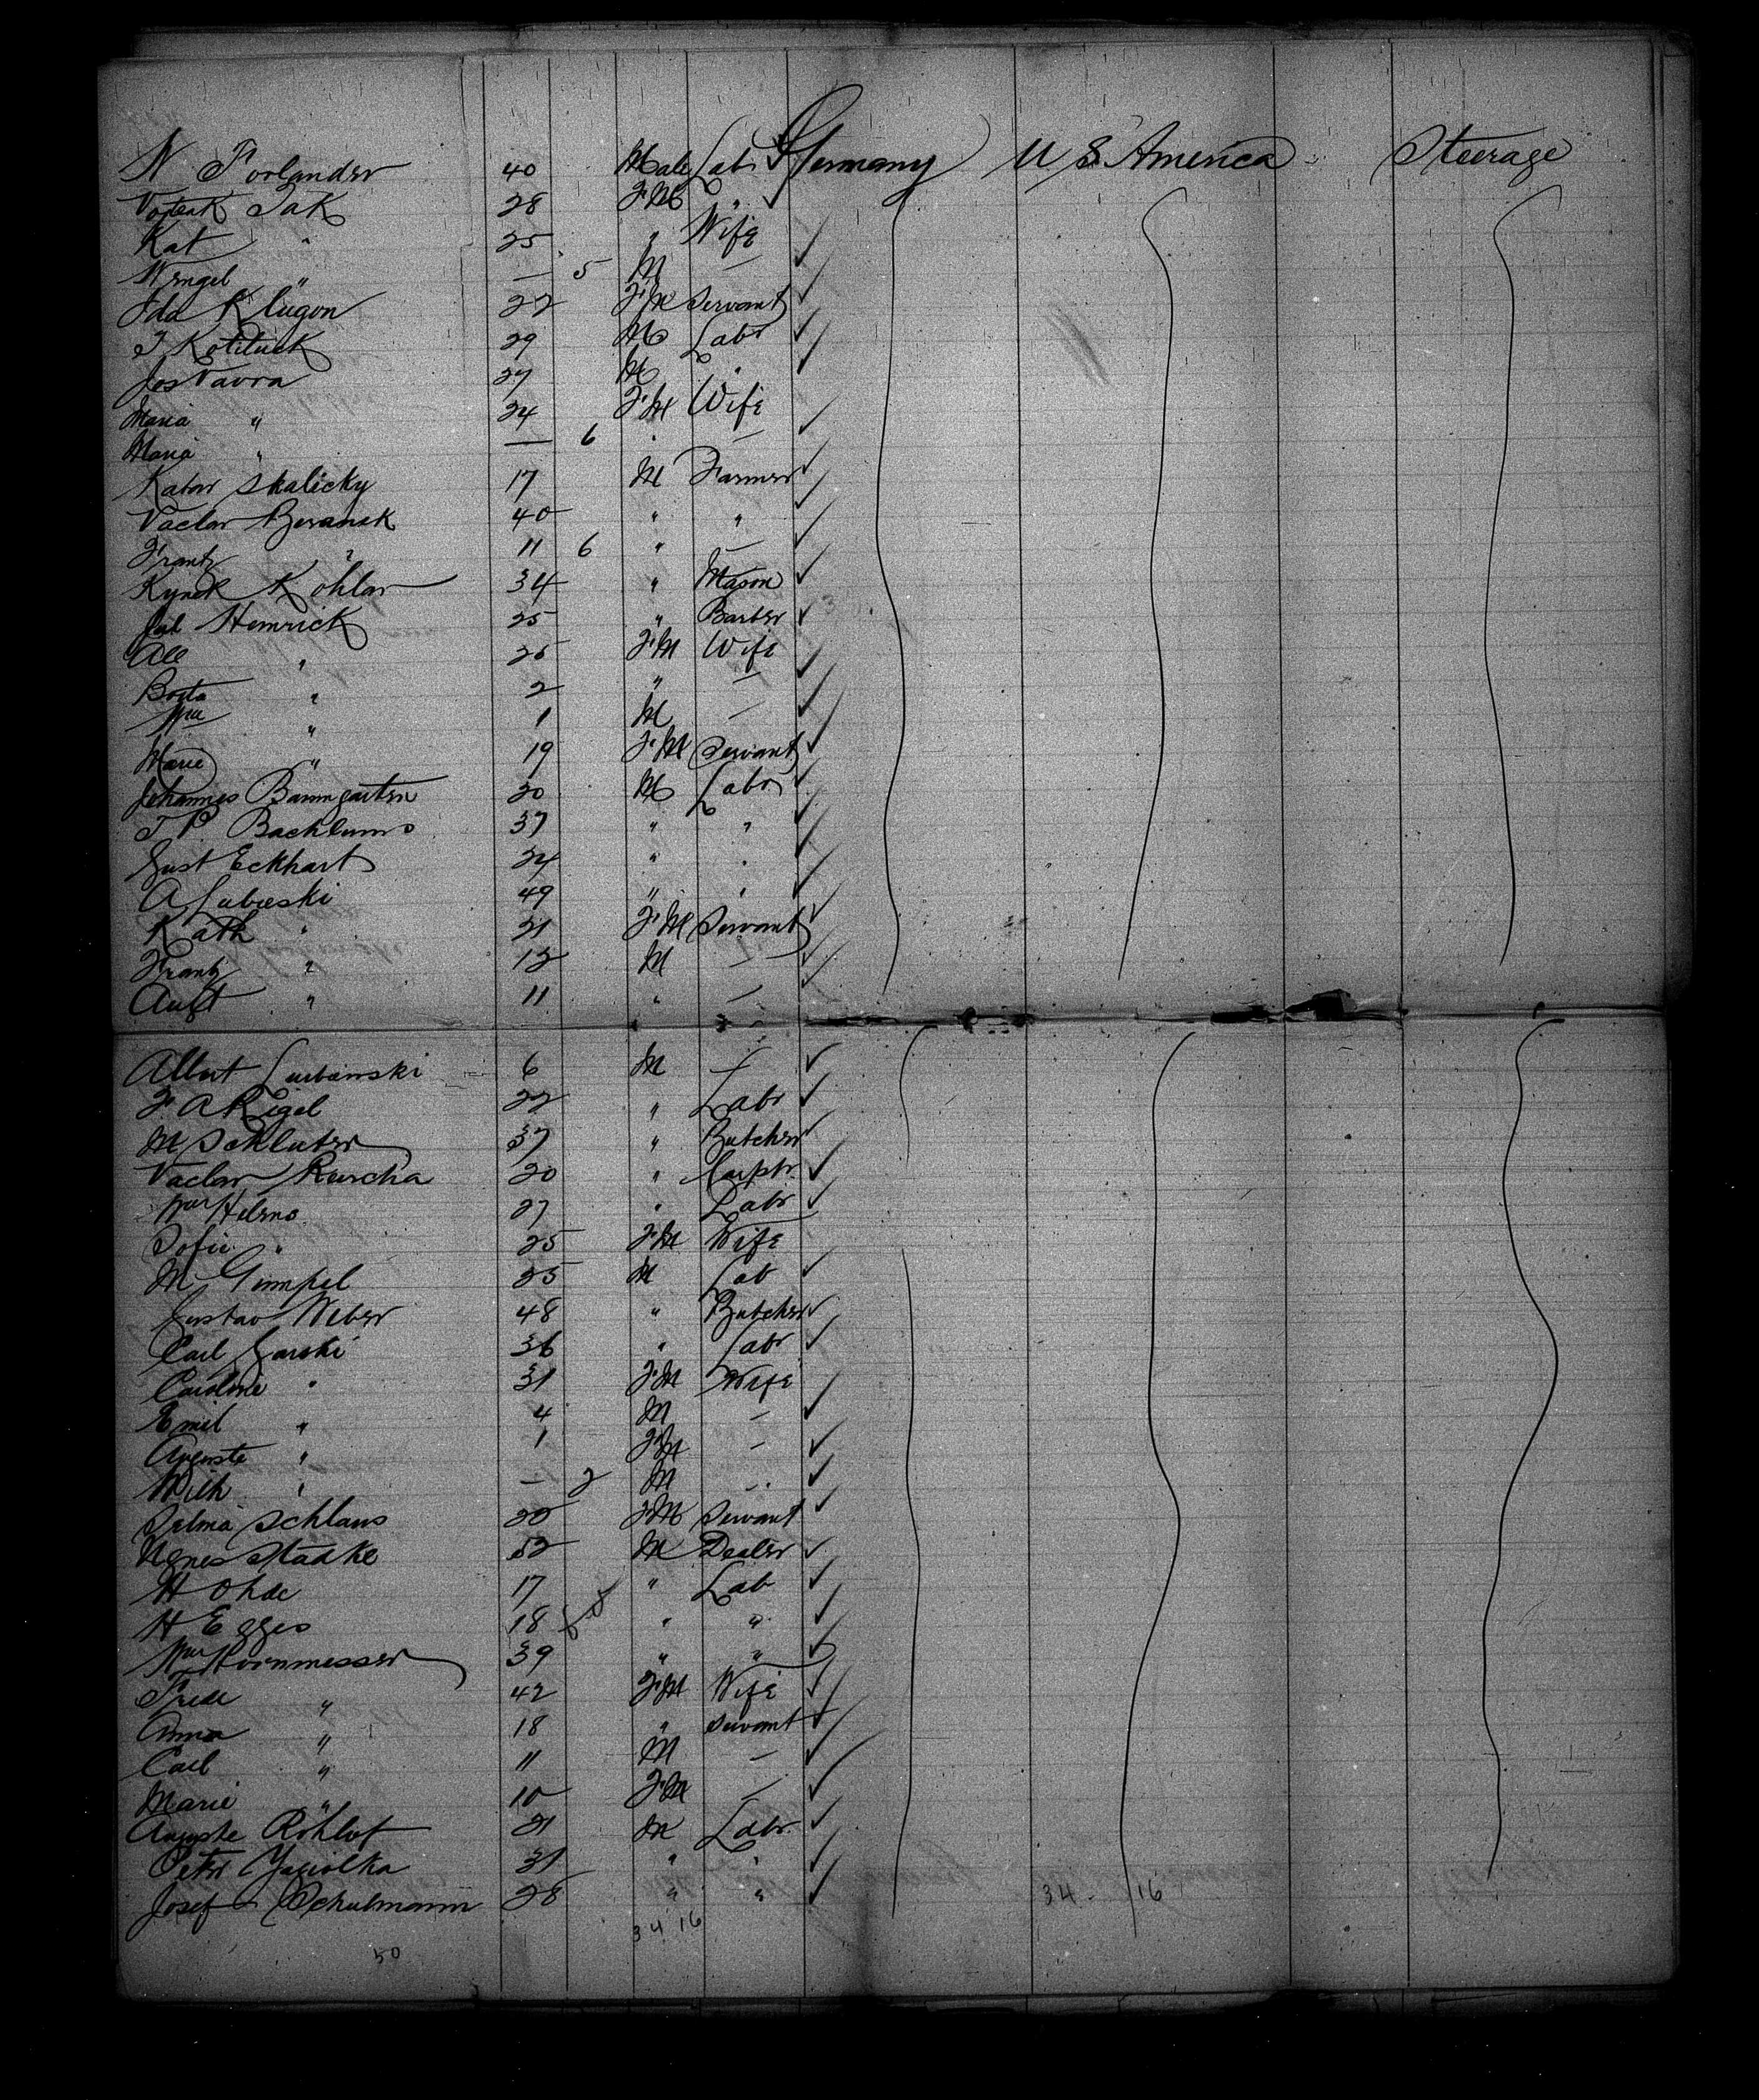 N Forlander 40 Male Labr Germany U S America Steerage
Vojteak Jak 28 FM "
Kat " 25 " Wife
Wengel " — 5 M —
Ida Klugon 22 FM Servant
J Kotituck 29 M Labr
Jos Vavra 27 M "
Maria " 24 FM Wife
Maria " — 6 " —
Katar Skalicky 17 M Farmer
Vaclav Beranek 40 " "
Frantz " 11 6 " —
Kynek Kohlar 34 " Mason
Hemrick 25 " Barber
All " 26 FM Wife
Berta " 2 " —
Wm " 1 M —
Marie " 19 FM Servant
Johannes Baumgarten 30 M Labr
J P Backlums 37 " "
Gust Eckhart 24 " "
A Lubaeski 49 " "
Kath " 21 FM Servant
Frantz " 12 M —
Augt " 11 " —
Albert Lurbanski 6 M —
F A Rigel 22 " Labr
M Schluter 37 " Butcher
Vaclav Kurcha 20 " Carptr
Wm Helms 27 " Labr
Sofie " 25 FM Wife
M Gumpel 25 M Lab
Gustav Weber 48 " Butcher
Carl Garski 36 " Labr
Caroline " 31 FM Wife
Emil " 4 M —
Auguste " 1 FM —
Wilh " — 2 M —
Selma Schlaus 20 FM Servant
Agnes Stadke 52 M Dealer
H Ohde 17 " Lab
H Egges 18 " "
Wm Hornmesser 39 " "
Fride " 42 FM Wife
Anna " 18 " Servant
Carl " 11 M —
Marie " 10 FM —
Auguste Rohlof 21 M Labr
Peter Jagiolka 31 " "
Josef Schulmann 28 " "
34 16
34 16
50